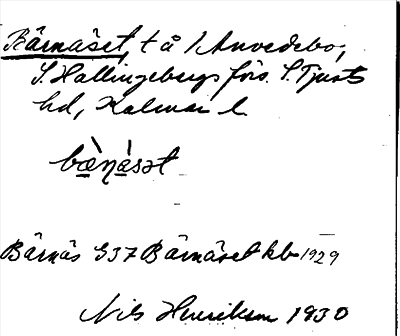 Bärnäset, t å /Anvedebo,
S. Hallingebergs förs. S. Tjusts
hd, Kalmar l.
bæ̀ṇásət
Bärnäs G37 Bärnäset hb 1929
Nils Henrikson 1930